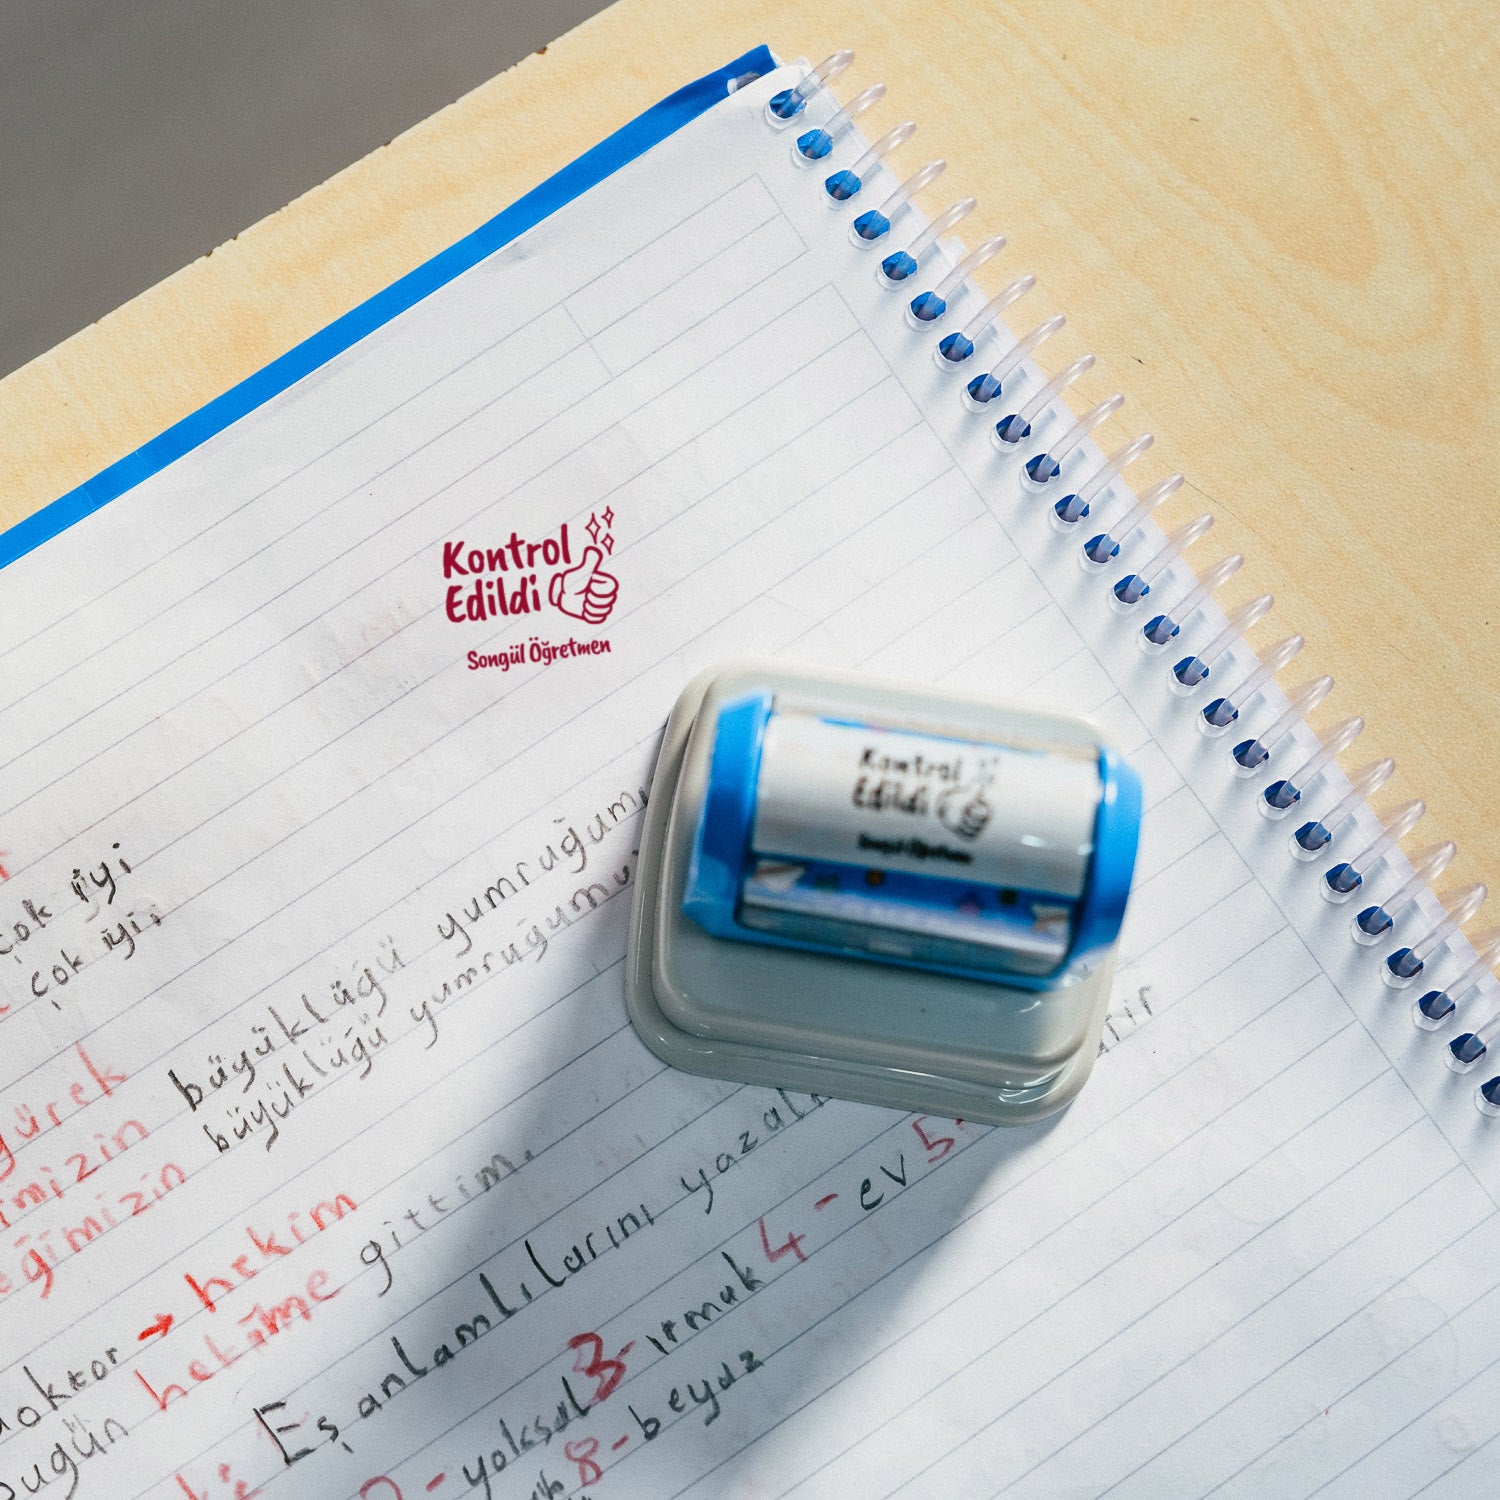 Kontrol
Edildi
Songül Öğretmen
Kontrol
Edildi
Songül Öğretmen
çok iyi
çok iyi
büyüklüğü yumruğumu
büyüklüğü yumruğumu
gürek
imizin
eğimizin
doktor → hekim
Bugün hekime gittim.
Eş anlamlılarını
yoksul 3- ırmak 4- ev 5-
8- beyaz